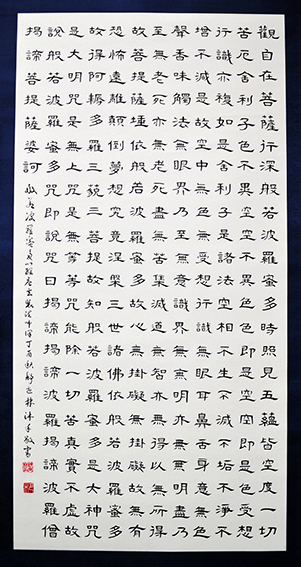 觀自在菩薩行深般若波羅蜜多時照見五蘊皆空度一切
苦厄舍利子色不異空空不異色色即是空空即是色受想
行識亦復如是舍利子是諸法空相不生不滅不垢不淨不
增不減是故空中無色無受想行識無眼耳鼻舌身意無色
聲香味觸法無眼界乃至無意識界無無明亦無無明盡乃
至無老死亦無老死盡無苦集滅道無智亦無得以無所得
故菩提薩埵依般若波羅蜜多故心無掛礙無掛礙故無有
恐怖遠離顛倒夢想究竟涅槃三世諸佛依般若波羅蜜多
故得阿耨多羅三藐三菩提故知般若波羅蜜多是大神咒
是大明咒是無上咒是無等等咒能除一切苦真實不虛故
說般若波羅蜜多咒即說咒曰揭諦揭諦波羅揭諦波羅僧
揭諦菩提薩婆訶 般若波羅蜜多心經 丁酉秋 敬書